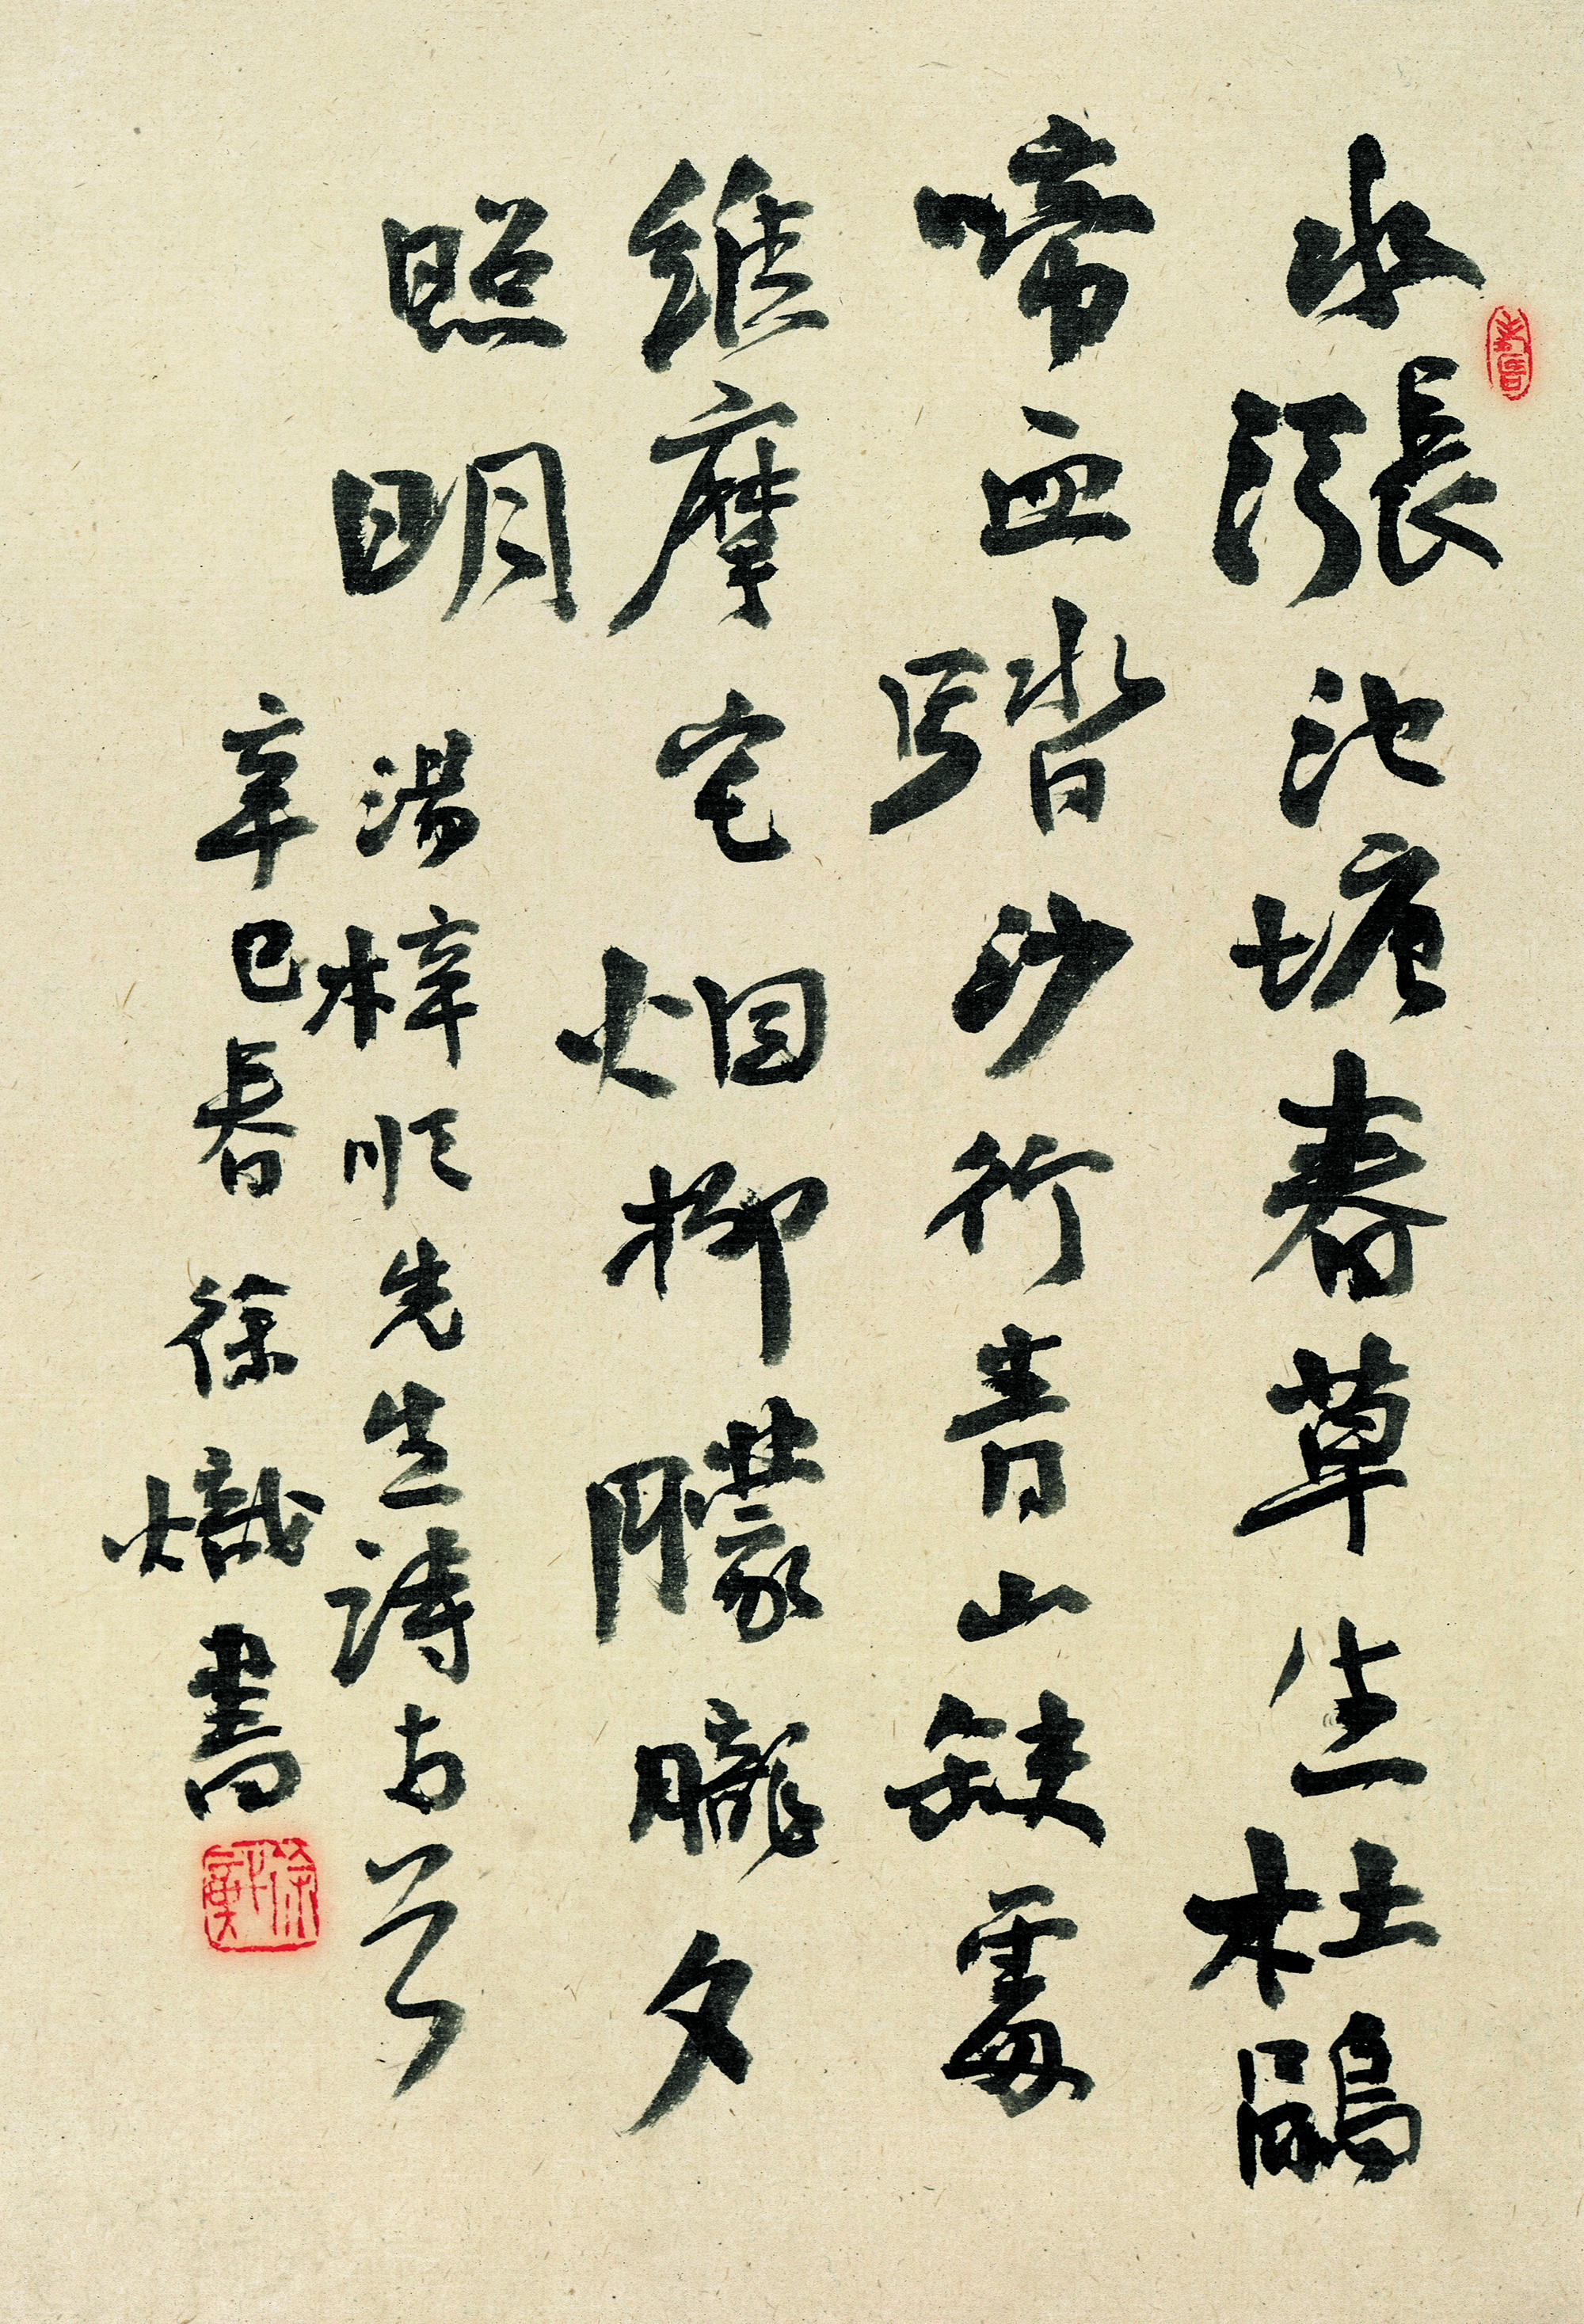 水漲池塘春草生杜鵑
啼血踏沙行青山缺處
維摩宅烟柳朦朧夕
照明
湯梓順先生詩古是
辛巳春徐熾書